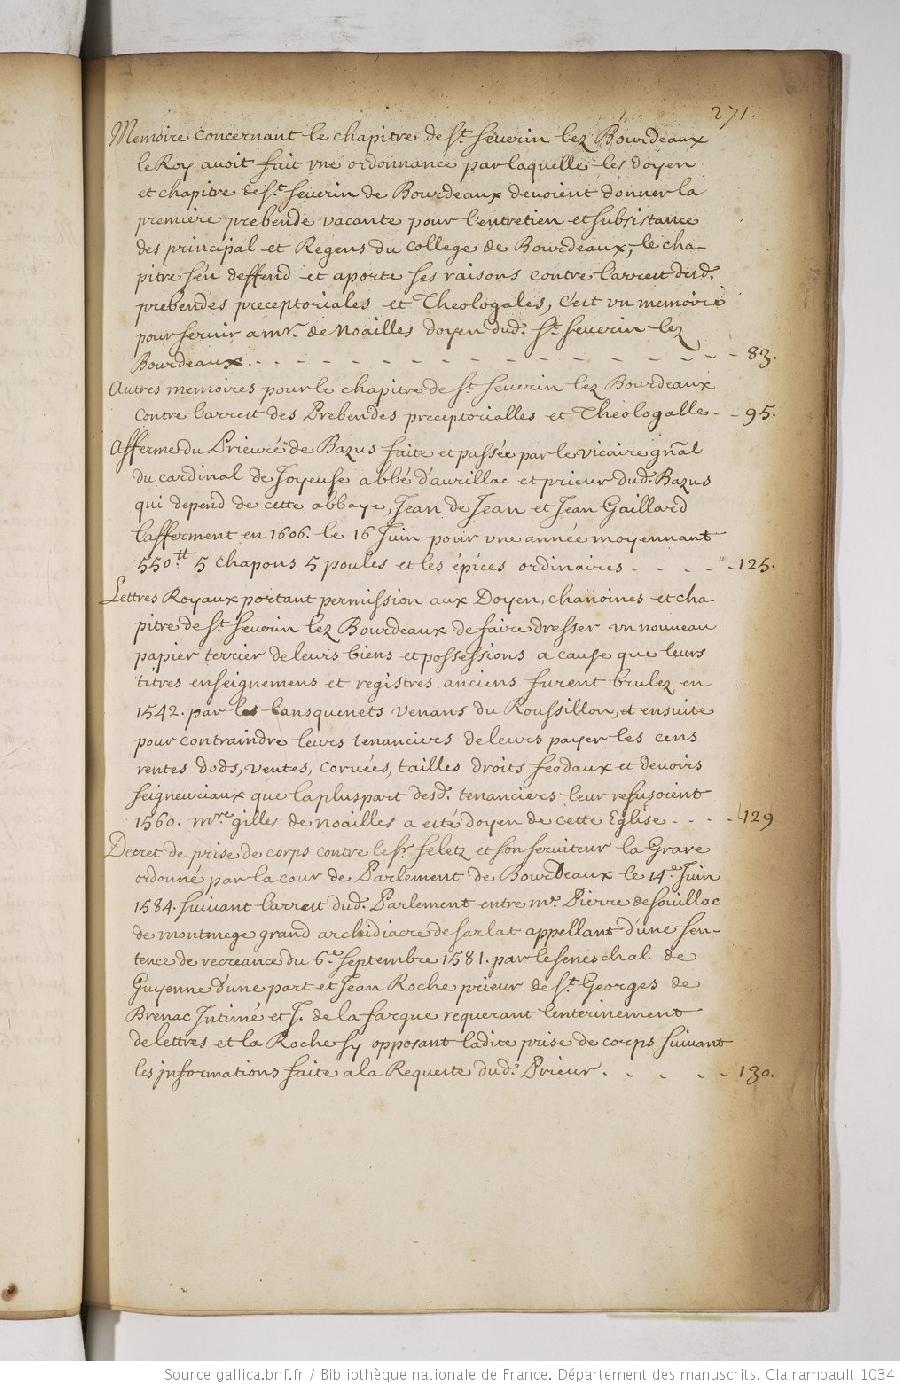 271.
Memoire concernant le chapitre de St. Severin lez Bourdeaux
le Roy avoit fait vne ordonnance par laquelle les doyen
et chapitre de St. Severin de Bourdeaux devoient donner la
premiere prebende vacante pour l'entretien et subsistance
des principal et Regens du college de Bourdeaux, le cha-
pitre s'en deffend et aporte ses raisons contre l'arrest dud.
prebendes preceptoriales et Theologales, c'est vn memoire
pour servir a mr. de Noailles doyen dud. St. Severin lez
Bourdeaux. - - - 83.
Autres memoires pour le chapitre de St Severin lez Bourdeaux
contre l'arrest des Prebendes preceptorialles et Theologalle - - 95.
Afferme du Prieuré de Bazus faite et passée par le vicaire gñal
du cardinal de Joyeuse abbé d'aurillac et prieur dud. Bazus
qui depend de cette abbaye, Jean de Jean et Jean Gaillard
l'afferment en 1606. le 16 Juin pour vne année moyennant
550.tt 5 chapons 5 poules et les épices ordinaires - - - 125.
Lettres Royaux portant permission aux Doyen, chanoines et cha-
pitre de St. Severin lez Bourdeaux de faire dresser vn nouveau
papier terrier de leurs biens et possessions a cause que leurs
titres enseignemens et registres anciens furent brulez en
1542. par les lansquenets venans du Roussillon, et ensuite
pour contraindre leurs tenanciers de leurs payer les cens
rentes dods, ventes, corvées, tailles droits féodaux et devoirs
seigneuriaux que la pluspart desd. tenanciers leur refusoient
1560. mre. gilles de Noailles a esté doyen de cette Eglise - - - 129
Decret de prise de corps contre le Sr. feletz et son serviteur la Grave
ordonné par la cour de Parlement de Bourdeaux le 14e. Juin
1584. suivant l'arrest dud. Parlement entre mre. Pierre de souillac
de montmege grand archidiacre de sarlat appellant d'une sen-
tence de recreance du 6e. septembre 1581. par le seneschal de
Guyenne d'une part et Jean Roche prieur de St. Georges de
Brenac Intimé et J. de la farque requerant l'enterinement
de lettres et la Roche s'y opposant ladite prise de corps suivant
les informations faite a la Requeste dud. Prieur. - - - 130.
Source gallica.bnf.fr / Bibliothèque nationale de France. Département des manuscrits. Clairambault 1034